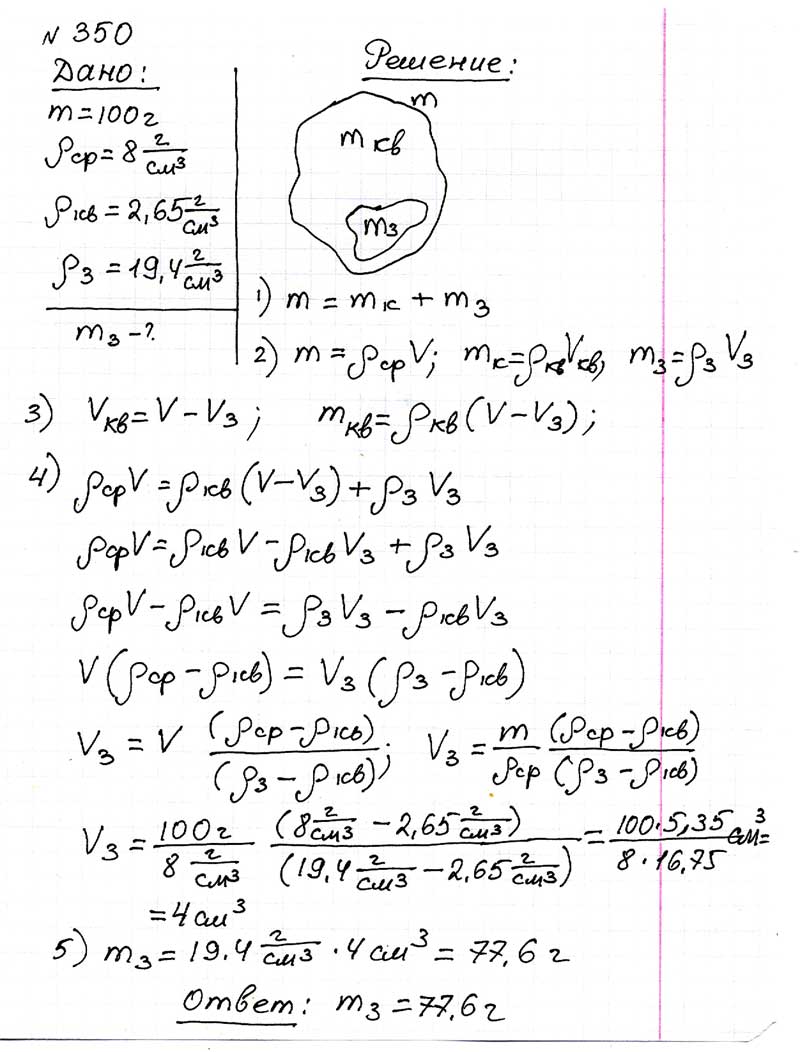 N 350
Дано:
m = 100 г
ρср = 8 г/см³
ρкв = 2,65 г/см³
ρз = 19,4 г/см³
mз - ?
Решение:
m
mкв
mз
1) m = mк + mз
2) m = ρср V; mк = ρкв Vкв, mз = ρз Vз
3) Vкв = V − Vз; mкв = ρкв (V − Vз);
4) ρср V = ρкв (V − Vз) + ρз Vз
ρср V = ρкв V − ρкв Vз + ρз Vз
ρср V − ρкв V = ρз Vз − ρкв Vз
V (ρср − ρкв) = Vз (ρз − ρкв)
Vз = V (ρср − ρкв)/(ρз − ρкв); Vз = m/ρср (ρср − ρкв)/(ρз − ρкв)
Vз = 100 г/8 г/см³ (8 г/см³ − 2,65 г/см³)/(19,4 г/см³ − 2,65 г/см³) = 100·5,35/8·16,75 см³ =
= 4 см³
5) mз = 19,4 г/см³ · 4 см³ = 77,6 г
Ответ: mз = 77,6 г